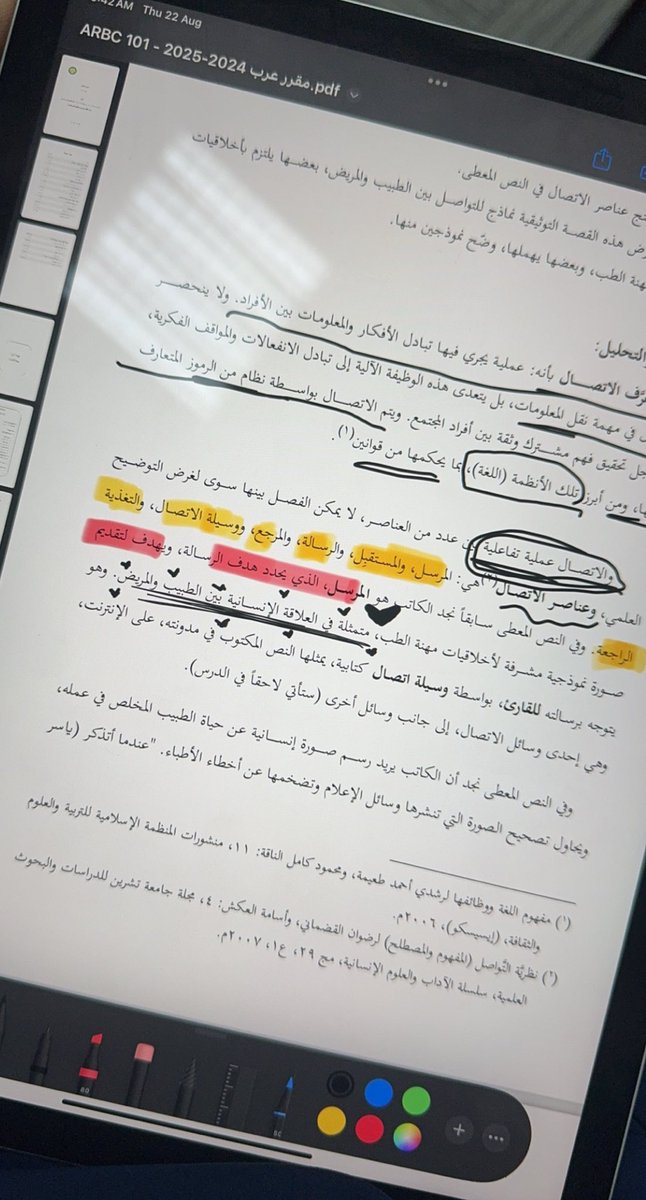 :42 AM Thu 22 Aug
ARBC 101 - 2025-2024 مقرر عرب.pdf
عناصر الاتصال في النص المعطى.
هذه القصة التوثيقية نماذج للتواصل بين الطبيب والمريض، بعضها يلتزم بأخلاقيات
مهنة الطب، وبعضها يهملها، وضّح نموذجين منها.
والتحليل:
الاتصال بأنه: عملية يجري فيها تبادل الأفكار والمعلومات بين الأفراد. ولا ينحصر
في مهمة نقل المعلومات، بل يتعدى هذه الوظيفة الآلية إلى تبادل الانفعالات والمواقف الفكرية،
تحقيق فهم مشترك وثقة بين أفراد المجتمع. ويتم الاتصال بواسطة نظام من الرموز المتعارف
ومن أبرز تلك الأنظمة (اللغة)، بما يحكمها من قوانين(١).
والاتصال عملية تفاعلية عدد من العناصر، لا يمكن الفصل بينها سوى لغرض التوضيح
العلمي، وعناصر الاتصال(٢) هي: المرسل، والمستقبل، والرسالة، والمرجع، ووسيلة الاتصال، والتغذية
الراجعة. وفي النص المعطى سابقاً نجد الكاتب هو المرسل، الذي يحدد هدف الرسالة، ويهدف لتقديم
صورة نموذجية مشرفة لأخلاقيات مهنة الطب، متمثلة في العلاقة الإنسانية بين الطبيب والمريض. وهو
يتوجه برسالته للقارئ، بواسطة وسيلة اتصال كتابية، يمثلها النص المكتوب في مدونته، على الإنترنت،
وهي إحدى وسائل الاتصال، إلى جانب وسائل أخرى (ستأتي لاحقاً في الدرس).
وفي النص المعطى نجد أن الكاتب يريد رسم صورة إنسانية عن حياة الطبيب المخلص في عمله،
ويحاول تصحيح الصورة التي تنشرها وسائل الإعلام وتضخمها عن أخطاء الأطباء. "عندما أتذكر (ياسر
(١) مفهوم اللغة ووظائفها لرشدي أحمد طعيمة، ومحمود كامل الناقة: ١١، منشورات المنظمة الإسلامية للتربية والعلوم
والثقافة، (إيسيسكو)، ٢٠٠٦م.
(٢) نظريّة التَّواصل (المفهوم والمصطلح) لرضوان القضماني، وأسامة العكش: ٤، مجلة جامعة تشرين للدراسات والبحوث
العلمية، سلسلة الآداب والعلوم الإنسانية، مج ٢٩، ع١، ٢٠٠٧م.
80
80